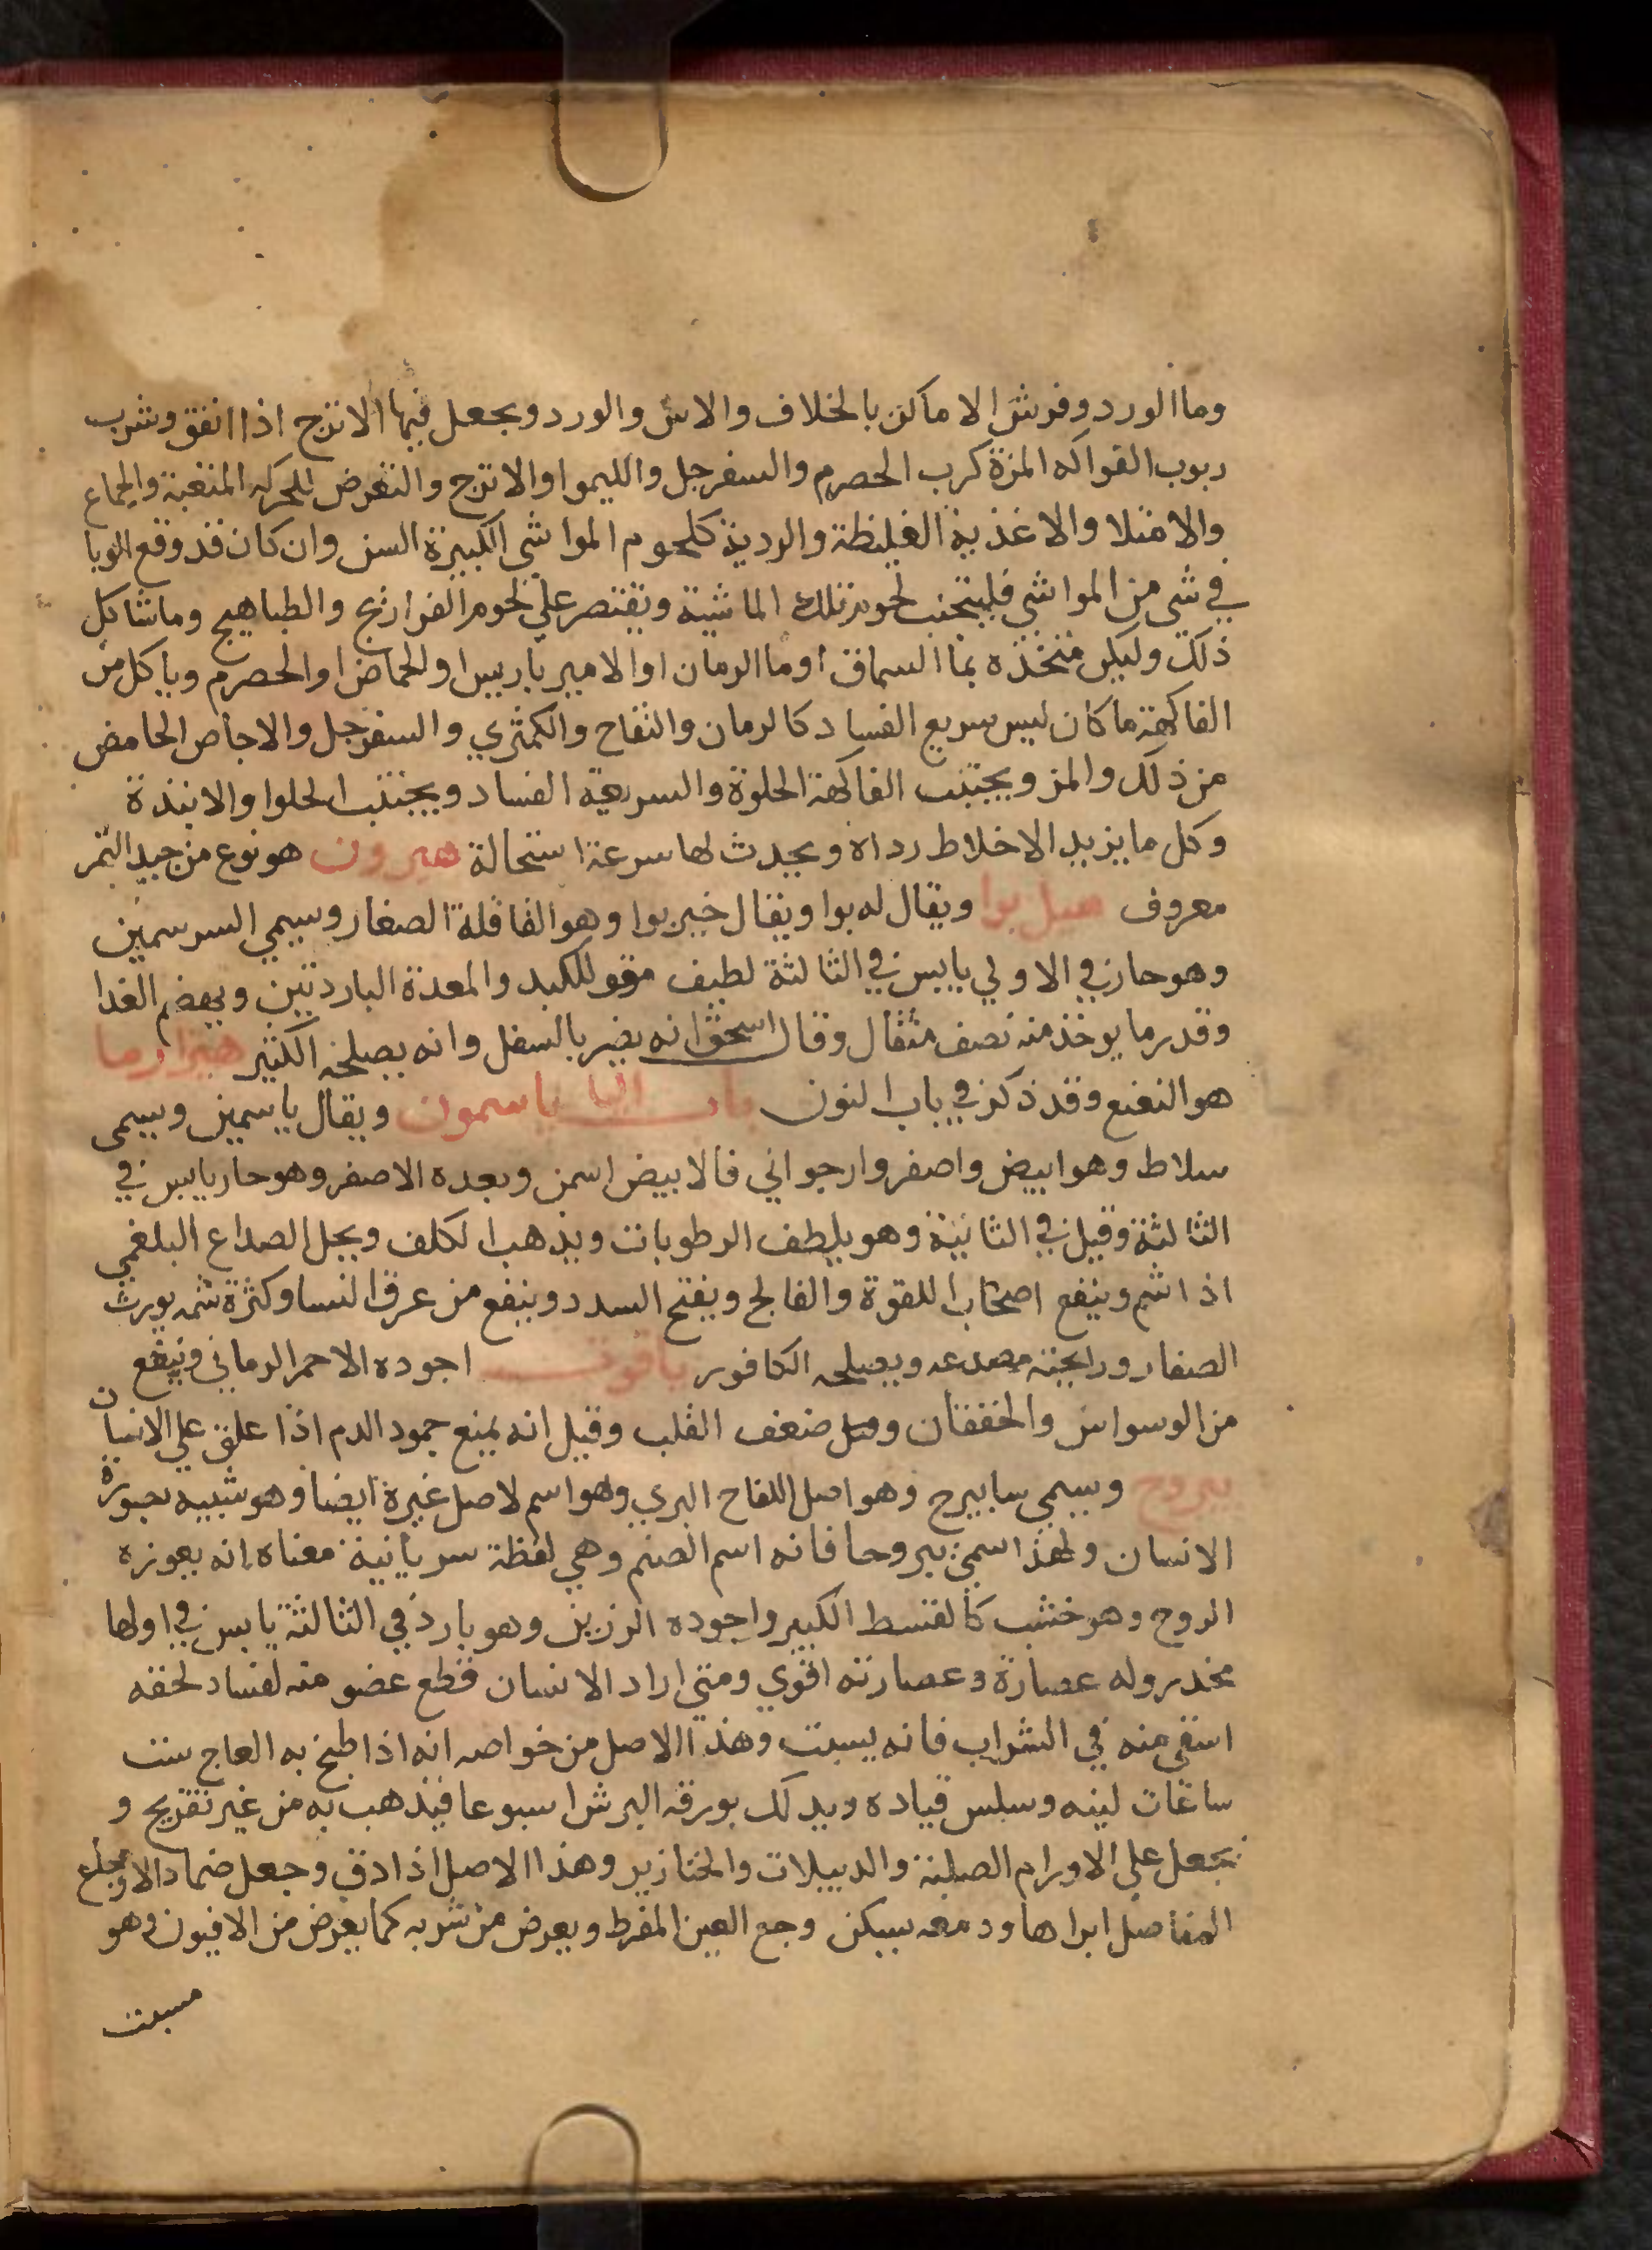 وما الورد وفرش الاماكن بالخلاف والاس والورد ويجعل فيها الاترج اذا اتفق وشرب
ربوب الفواكه المزة كرب الحصرم والسفرجل والليموا والاترج والتعرض للحركه المتعبة والجماع
والامتلا والاغذية الغليظة والردية كلحوم المواشي الكبيرة السن وان كان قد وقع الوبا
في شي من المواشي فليتجنب لحوم تلك الماشية ويقتصر علي لحوم الفراريج والطباهيج وما شاكل
ذلك وليكن متخذه بما السماق او ما الرمان او الامير باريس او الحماض او الحصرم وياكل من
الفاكهة ما كان ليس سريع الفساد كالرمان والتفاح والكمثري والسفرجل والاجاص الحامض
من ذلك والمز ويجتنب الفاكهة الحلوة والسريعة الفساد ويجتنب الحلوا والانبذة
وكل ما يزيد الاخلاط رداة ويحدث لها سرعة استحالة هيرون هو نوع من جيد التمر
معروف هيل بوا ويقال له بوا ويقال خيربوا وهو القاقلة الصغار وسمي السرسمين
وهو حار في الاولي يابس في الثالثة لطيف مقو للكبد والمعدة الباردتين ويهضم الغدا
وقدر ما يوخذ منه نصف مثقال وقال اسحق انه يضر بالسفل وانه يصلحه الكثير هزارما
هو النعنع وقد ذكر في باب النون باب اليا ياسمون ويقال ياسمين ويسمي
سلاط وهو ابيض واصفر وارجواني فالابيض اسمن وبعده الاصفر وهو حار يابس في
الثالثة وقيل في الثانية وهو يلطف الرطوبات ويذهب الكلف ويحل الصداع البلغمي
اذا شم وينفع اصحاب اللقوة والفالج ويفتح السدد وينفع من عرق النسا وكثرة شمه يورث
الصفار ورايحته مصدعه ويصلحه الكافور ياقوت اجوده الاحمر الرماني وينفع
من الوسواس والخفقان وقيل ضعف القلب وقيل انه يمنع جمود الدم اذا علق علي الانسان
يبروح ويسمي سابيرج وهو اصل اللفاح البري وهو اسم لاصل غيرة ايضا وهو شبيه بصورة
الانسان ولهذا سمي يبروحا فانه اسم الصنم وهي لفظة سريانية معناه انه يعوزه
الروح وهو خشب كالقسط الكبير واجوده الرزين وهو بارد في الثالثة يابس في اولها
مخدر وله عصارة وعصارته اقوي ومتي اراد الانسان قطع عضو منه لفساد لحقه
استقي منه في الشراب فانه يسبت وهذا الاصل من خواصه انه اذا طبخ به العاج ست
ساعات لينه وسلس قياده ويدلك بورقه البرش اسبوعا فيذهب به من غير تقريح و
يجعل علي الاورام الصلبة والدبيلات والخنازير وهذا الاصل اذا دق وجعل ضمادا لاوجاع
المفاصل ابراها ودمعه يسكن وجع العين المفرط ويعرض من شربه كما يعرض من الافيون وهو
مسبت